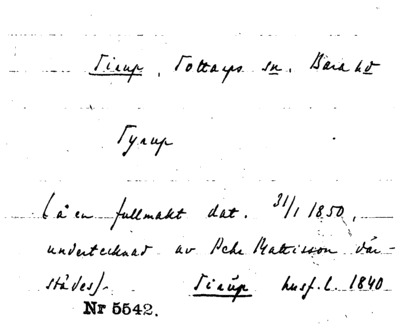 Tirup, Tottarps sn. Bara hd
Tyrup
(å en fullmakt dat. 31/1 1850,
undertecknad av Pehr Mattisson där-
städes). Tirup husf.l. 1840
Nr 5542.